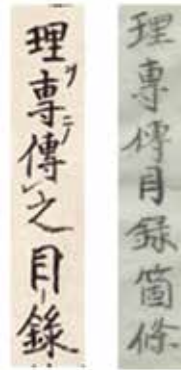 理専傳之目錄
理専傳目錄箇條